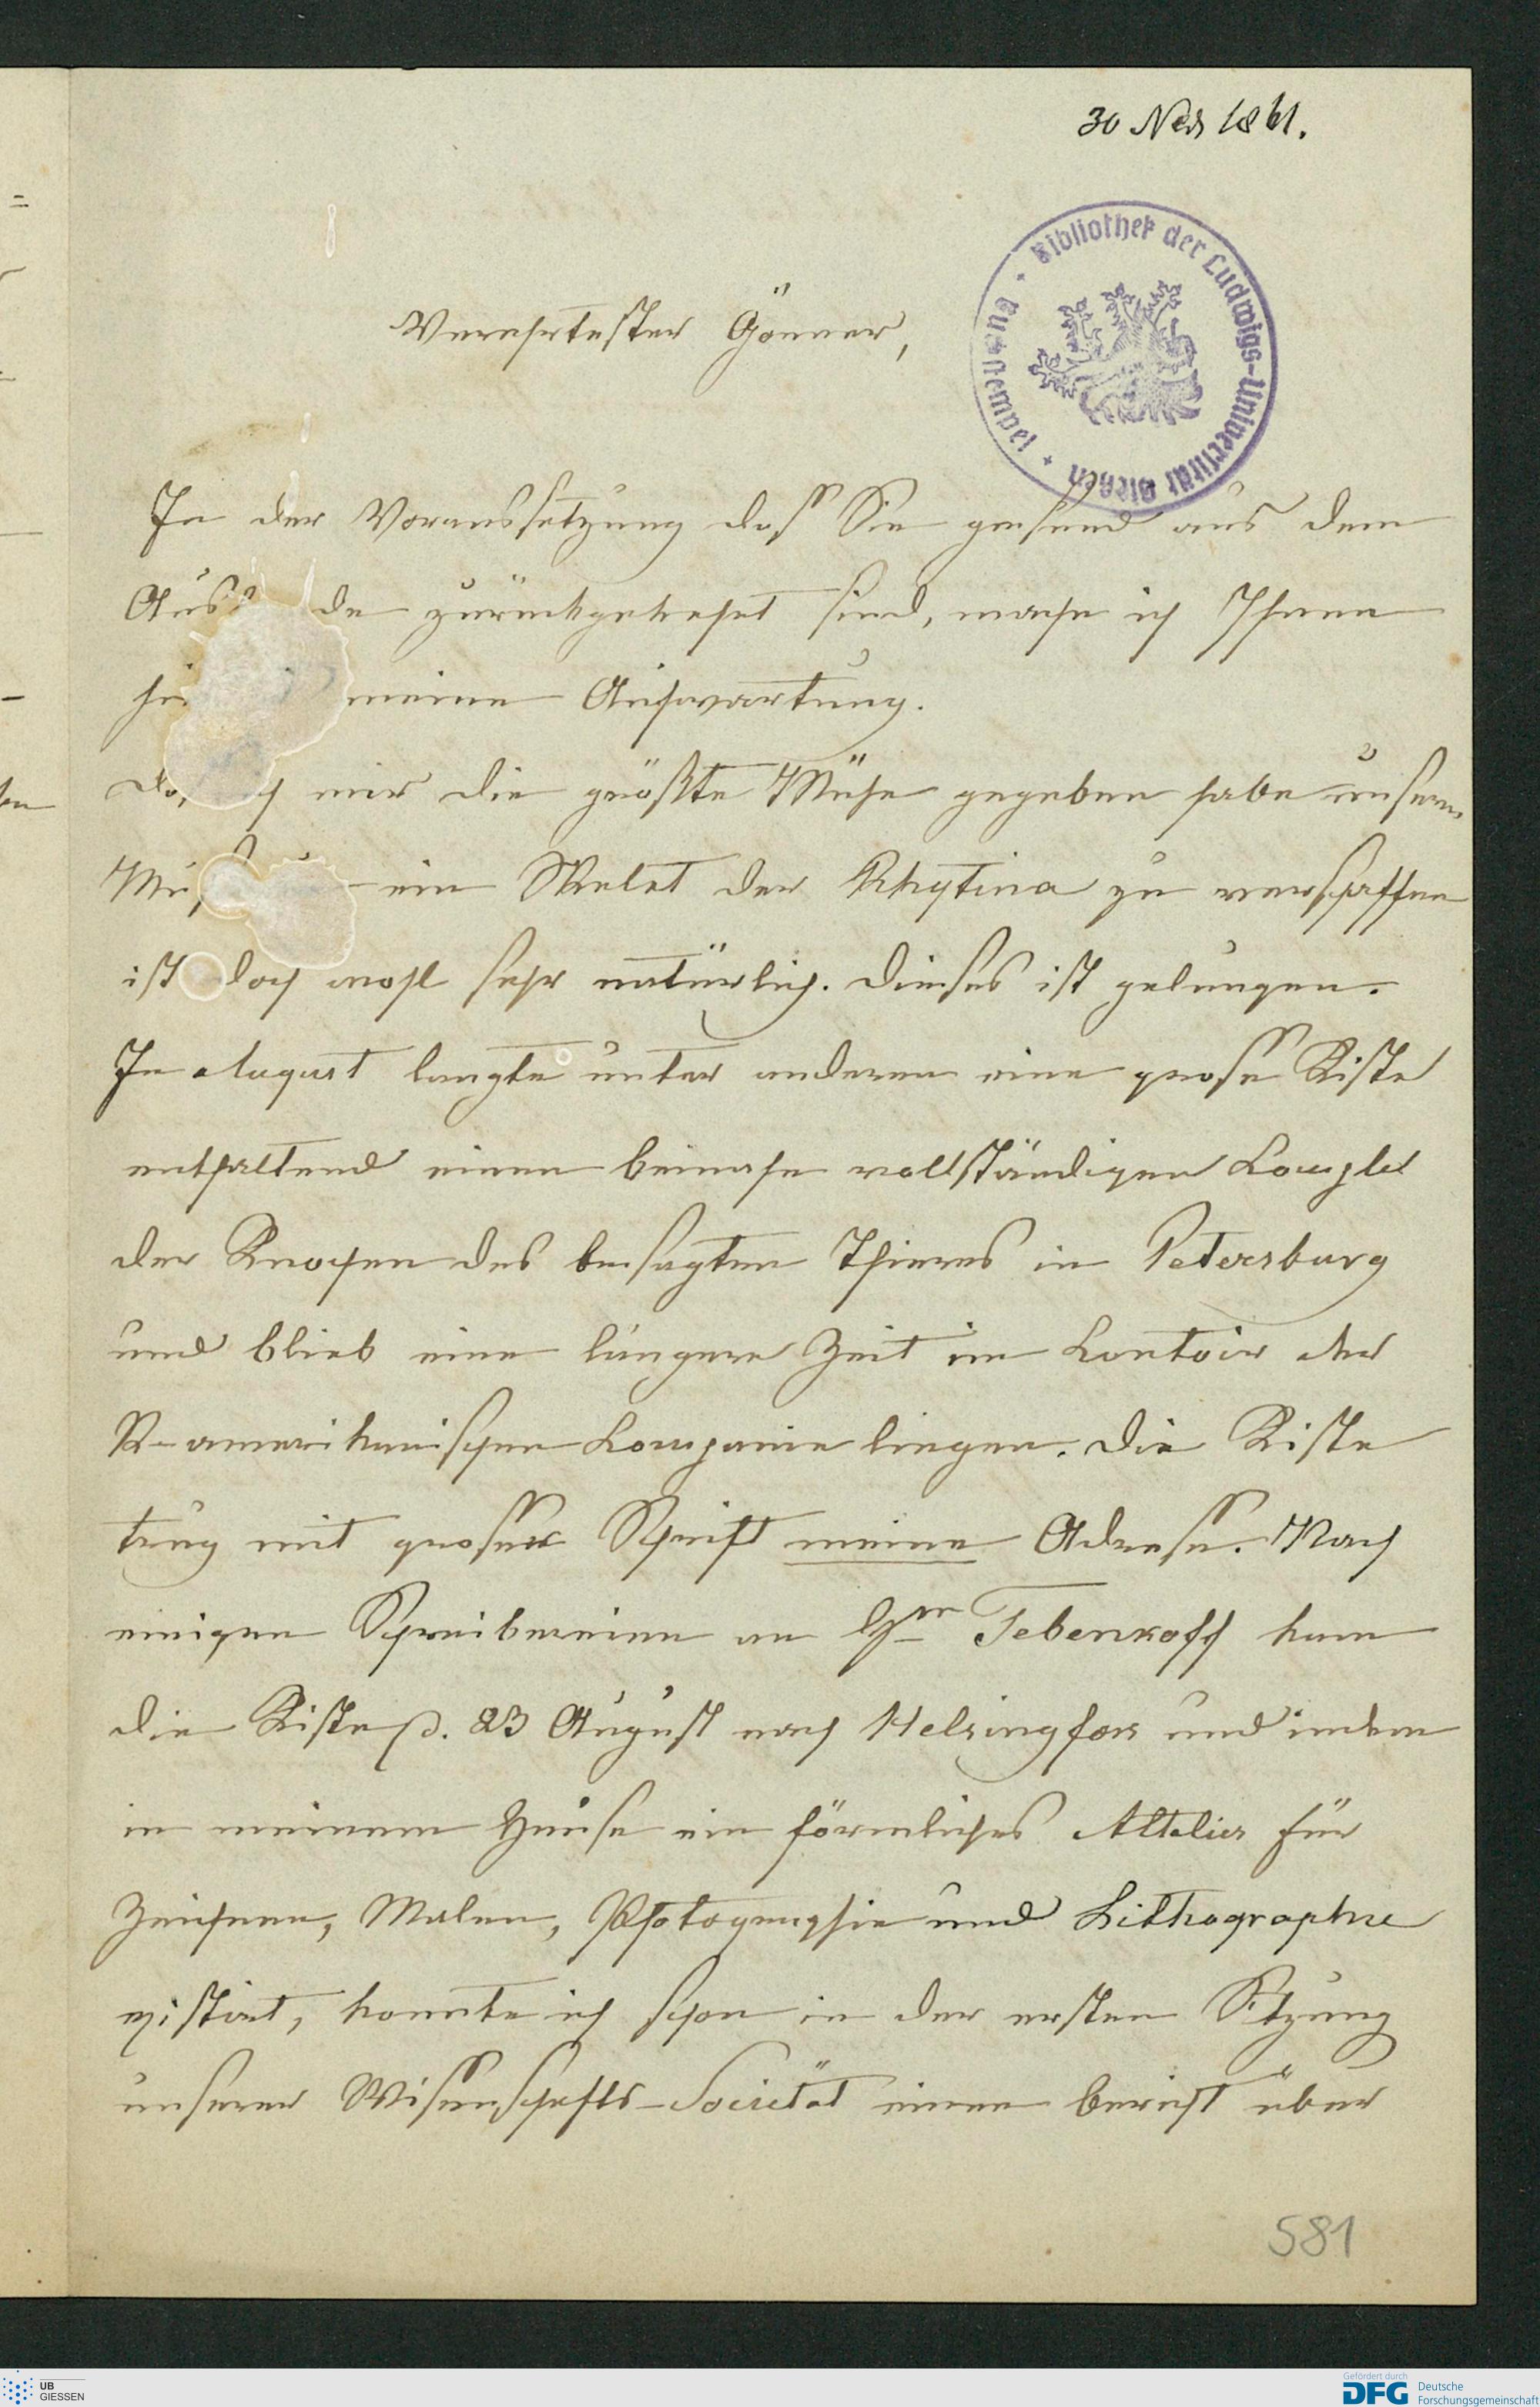 30 Nov 1861.
Bibliothek der Ludwigs-Universität Giessen
Verehrtester Gönner,
In der Voraussetzung daß Sie gesund aus dem
Aus de zurückgekehrt sind, mache ich Ihnen
hi meine Aufwartung.
mir die größte Mühe gegeben habe unserm
Mu ein Skelet der Rhytina zu verschaffen
ist doch wohl sehr natürlich. Dieses ist gelungen.
In August langte unter anderen eine große Kiste
enthaltend einen beinahe vollständigen Complet
der Knochen des besagten Thieres in Petersburg
und blieb eine längere Zeit im Contoir der
R-amerikanischen Compagnie liegen. Die Kiste
trug mit großer Schrift meine Adresse. Nach
einigen Schreibereien an Hrn Tebenkoff kam
die Kiste p. 23 August nach Helsingfors und indem
in meinem Hause ein förmliches Attelier für
Zeichnen, Malen, Photographie und Lithographie
existirt, konnte ich schon in der ersten Sitzung
unserer Wissenschafts-Societät einen Bericht über
581
UB
GIESSEN
Gefördert durch
DFG Deutsche
Forschungsgemeinschaft